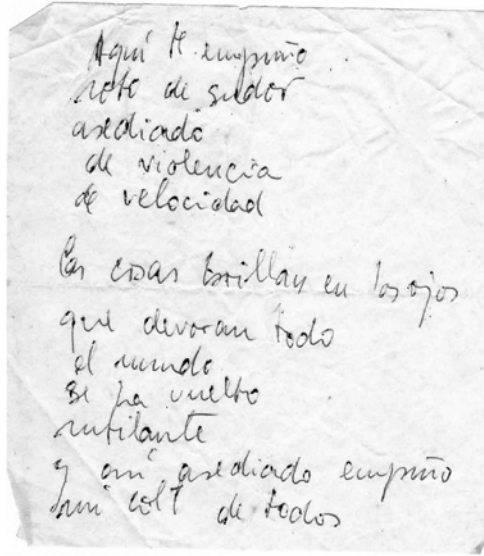 Aquí te empuño
roto de sudor
asediado
de violencia
de velocidad
las cosas brillan en los ojos
que devoran todo
el mundo
se ha vuelto
rutilante
y así asediado empuño
mi colt de todos